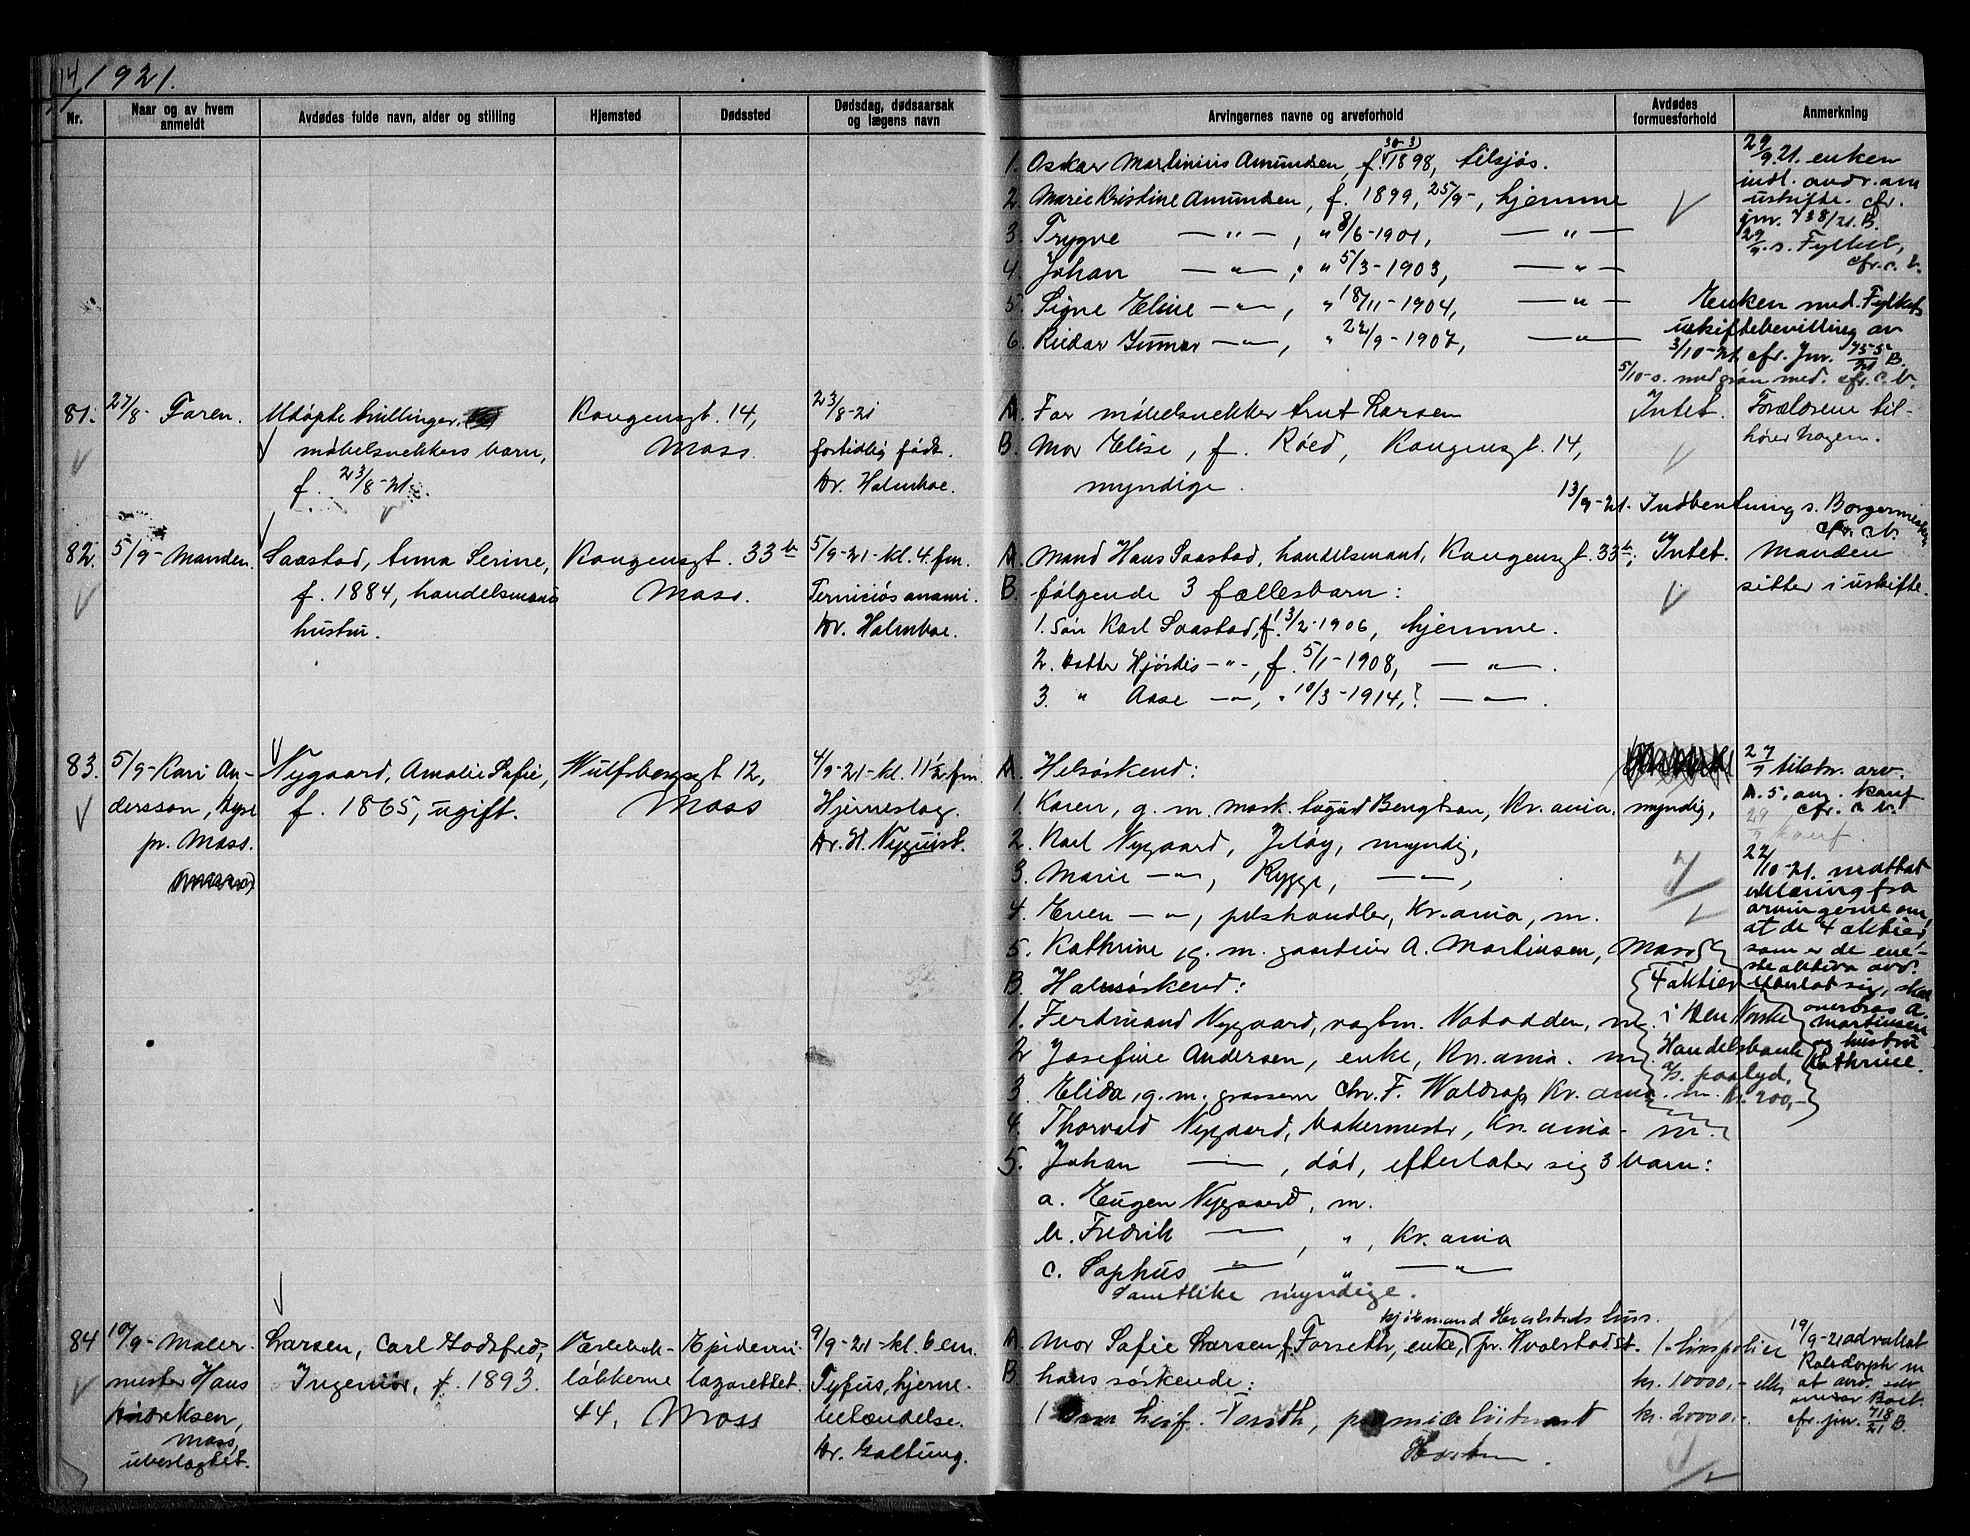 14 1921.
Nr.
Naar og av hvem anmeldt
Avdødes fulde navn, alder og stilling
Hjemsted
Dødssted
Dødsdag, dødsaarsak og lægens navn
Arvingernes navne og arveforhold
Avdødes formuesforhold
Anmerkning
30-3
1. Oskar Martinius Amundsen, f. 1898, tilsjøs.
2. Marie Kristine Amundsen, f. 1899, 25/9-, hjemme
3. Trygve —"—, " 8/6-1901, —"—
4. Johan —"—, " 5/3-1903, —"—
5. Signe Eline —"—, " 18/11-1904, —"—
6. Reidar Gunnar —"—, " 22/9-1907, —"—
29/9.21. enken
indl. andr. om
uskifte. cfr.
jnr. 738/21. B.
29/9. s. Fylket,
cfr. c. b.
Enken med. Fylkets
uskiftebevilling av
3/10-21. cfr. Jnr. 755/21 B.
5/10-s. medgjøn med. cfr. c. b.
81. 27/8- Faren.
Udøpte trillinger
møbelsnekkers barn,
f. 23/8-21.
Kongensgt. 14,
Moss.
23/8-21
fortidlig født.
Dr. Holmboe.
A. Far møbelsnekker Knut Larsen
B. Mor Elise, f. Røed, Kongensgt. 14,
myndige.
Intet.
Forældrene til-
hører hagem.
13/9-21. Indberetning s. Borgermesteren
cfr. c. b.
82. 5/9- Manden.
Saastad, Anna Serine,
f. 1884, handelsmands
hustru.
Kongensgt. 33b
Moss.
5/9-21-kl. 4. fm.
Perniciøs anæmi.
Dr. Holmboe.
A. Mand Hans Saastad, handelsmand, Kongensgt. 33b,
B. følgende 3 fællesbarn:
1. Søn Karl Saastad, f. 13/2-1906, hjemme.
2. Datter Hjørdis -"-, f. 5/1-1908, —"—.
3. " Aase —"—, " 10/3-1914, —"—.
Intet.
Manden
sitter i uskifte.
83. 5/9-Kari An-
dersson, Dyre
pr. Moss.
Nygaard, Amalie Sofie,
f. 1865, ugift.
Wulfsbergsgt 12,
Moss
4/9-21-kl. 11½ fm.
Hjerneslag.
Dr. H. Nyquist.
A. Helsøskend:
1. Karen, g. m. Bengtson, Kr.ania, myndig,
2. Karl Nygaard, Jeløy, myndig,
3. Marie —"—, Rygge, —"—,
4. Even —"—, pelshandler, Kr.ania, m.
5. Kathrine g. m. gaardeier A. Martinsen, Moss
B. Halvsøskend:
1. Ferdinand Nygaard, vagtm. Notodden, m.
2. Josefine Andersen, enke, Kr.ania. m.
3. Elida, g. m. grosserer Chr. F. Waldrop Kr.ania. m.
4. Thorvald Nygaard, bakermestr, Kr.ania- m.
5. Johan —"—, død, efterlater sig 3 barn:
a. Eugen Nygaard, m.
b. Fredrik —"—, ", Kr.ania
c. Sophus —"— " —"—
Samtlike myndige.
4 aktier
i Den Norske
Handelsbank
a/s. paalyd.
kr. 200,-
27/9 tilskr. arv.
A. 5, ang. konf
cfr. c. b.
29/9 konf.
22/10-21. mottat
erklæring fra
arvingerne om,
at de 4 aktier,
som er de ene-
ste aktiva avd.
efterlot sig, skal
overdras A.
Martinsen
og hustru
Kathrine.
84 10/9- Maler-
mester Hans
Andreksen,
Moss,
ubeslægtet.
Larsen, Carl Godsfred,
Ingeniør, f. 1893.
Værlebak-
løkkerne
44, Moss
Epidemi-
lazarettet.
9/9-21-kl. 6 em.
Tyfus, hjerne-
betændelse.
Dr. Galtung.
kjøbmand Hvalstads hus.
A. Mor Sofie Larsen, f. Forseth, enke, pr. Hvalstad st.
B. hans søskende:
1. livspolice
kr. 10000,- eller
kr. 20000.-.
19/9-21 advokat
Rolsdorph m
at avd. selv
ønsker Boet.
cfr. jnr. 718/21 B.